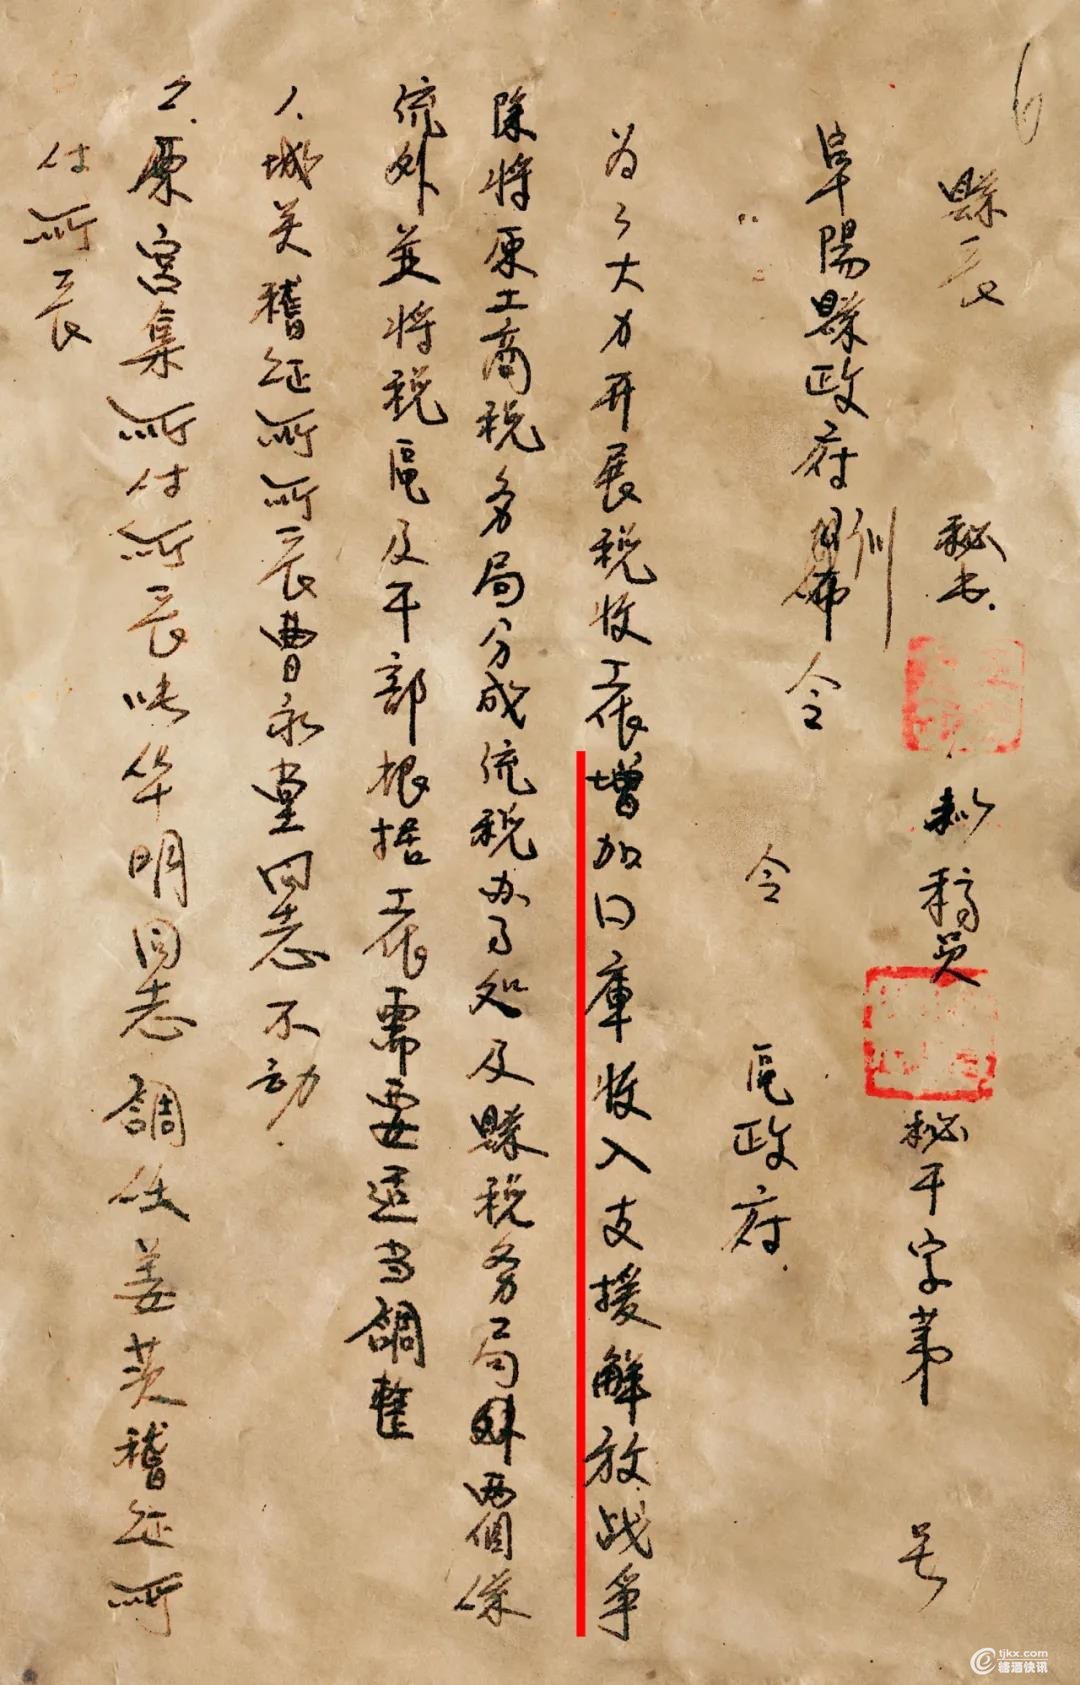 縣長 秘書 擬稿員 秘干字第 号
阜陽縣政府訓令
令 區政府
为了大力开展税收工作增加囗庫收入支援解放战争
除将原工商税务局分成流税办事処及縣税务局外两個係
流外並将税區及干部根据工作需要适当調整
1、城关稽征所所長曹永堂同志不动
2、原宫集所付所長 华明同志調任姜 稽征所
付所長
tjkx.com
糖酒快讯